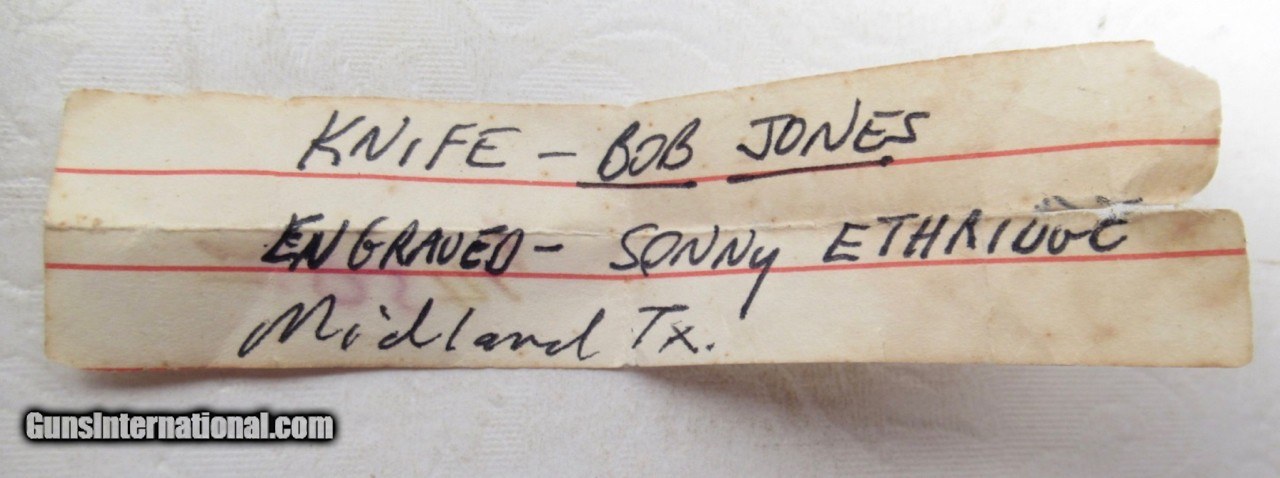 KNIFE - BOB JONES
ENGRAVED - SONNY ETHRIDGE
Midland Tx.
GunsInternational.com